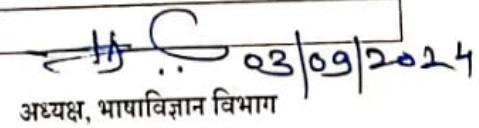 03/09/2024
अध्यक्ष, भाषाविज्ञान विभाग